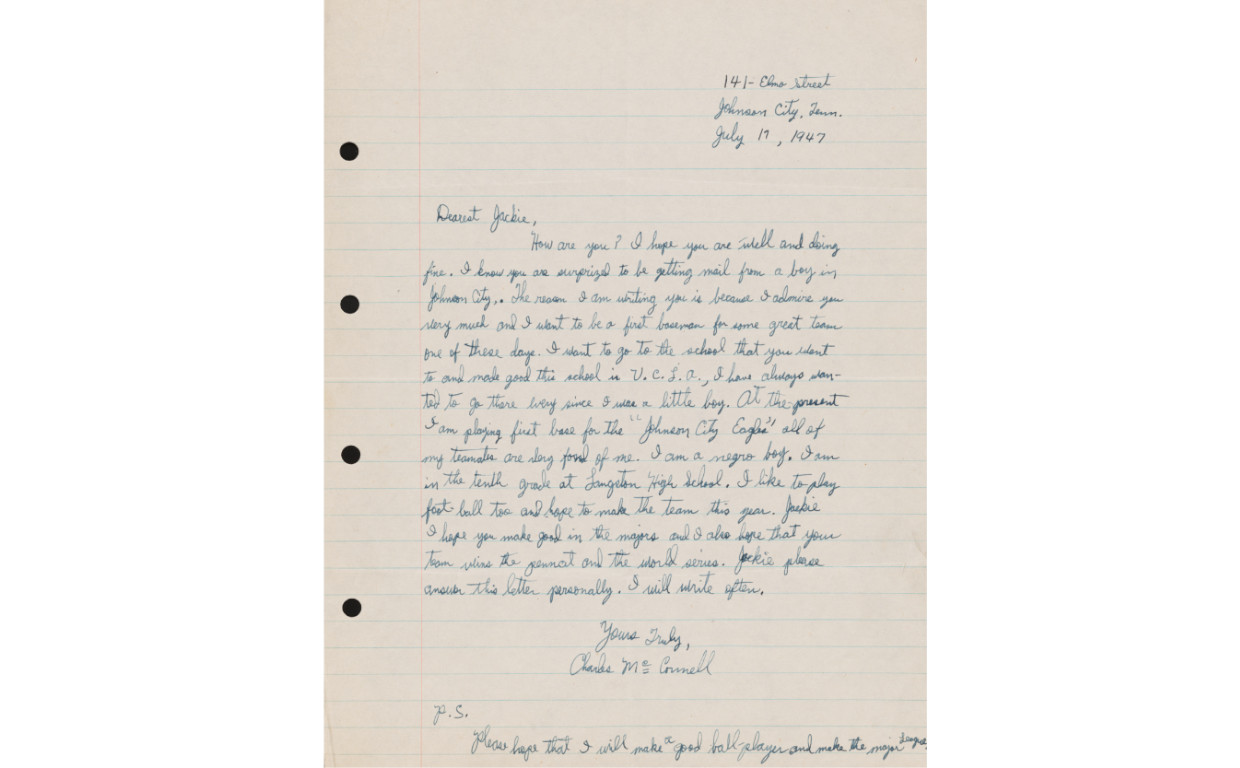 141- Elmo Street
Johnson City, Tenn.
July 17, 1947
Dearest Jackie,
How are you? I hope you are well and doing
fine. I know you are surprized to be getting mail from a boy in
Johnson City,. The reason I am writing you is because I admire you
very much and I want to be a first baseman for some great team
one of these days. I want to go to the school that you went
to and made good this school is U.C.L.A., I have always wan-
ted to go there every since I was a little boy. At the present
I am playing first base for the "Johnson City Eagles" all of
my teamates are very fond of me. I am a negro boy. I am
in the tenth grade at Langston High School. I like to play
foot-ball too and hope to make the team this year. Jackie
I hope you make good in the majors and I also hope that your
team wins the pennat and the world series. Jackie please
answer this letter personally. I will write often.
Yours Truly,
Charles Mc Connell
P.S.
Please hope that I will make a good ball-player and make the major league.